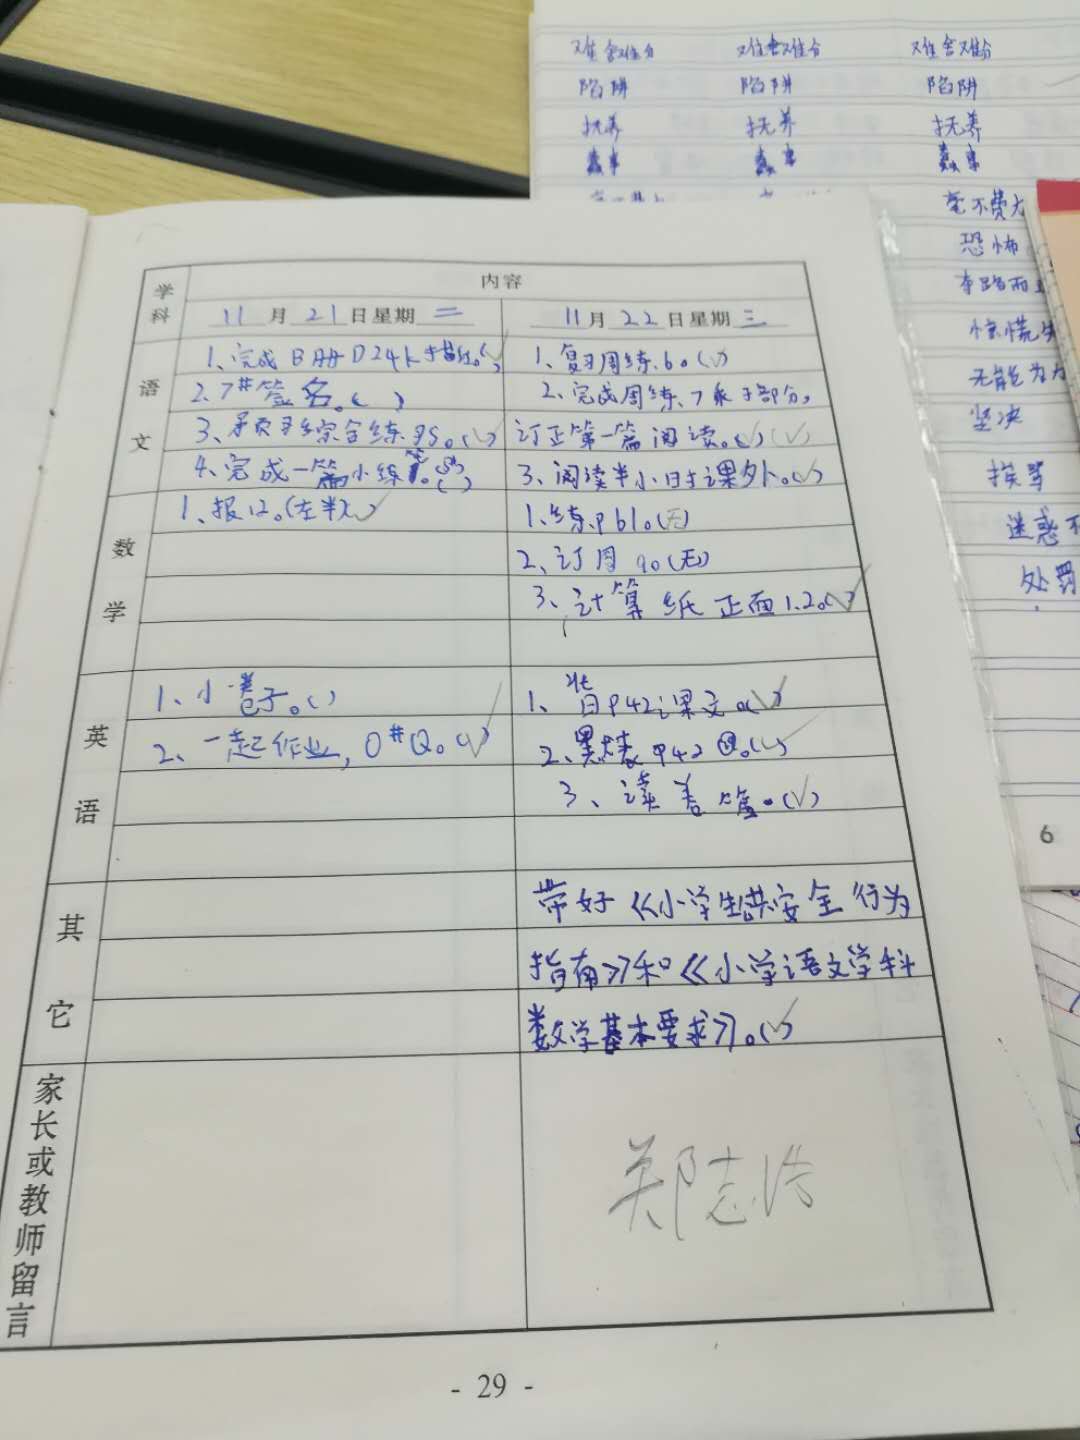 难舍难分 难舍难分 难舍难分
陷阱 陷阱 陷阱
抚养 抚养 抚养
蠢事 蠢事 蠢事
毫不费力
恐怖
夺路而
惊慌失
无能为力
坚决
挨骂
迷惑不
处罚
6
学科 内容
11月21日星期二 11月22日星期三
语文
1、完成B册D24k描红。(√)
2、7#签名。( )
3、练习综合练习5。(√)
4、完成一篇小练笔。( )
1、复习周练6。(√)
2、完成周练7剩下部分,
订正第一篇阅读。(√)(√)
3、阅读半小时课外。(√)
数学
1、报12。(左半)(√)
1、练P61。(无)
2、订周9。(无)
3、计算纸正面1.2。(√)
英语
1、小卷子。( )
2、一起作业,0#Q。(√)
1、背P42课文。(√)
2、默 P42 。(√)
3、读 篇。(√)
其它
带好《小学生公共安全行为
指南》和《小学语文学科
教学基本要求》。(√)
家长或教师留言
郑志浩
- 29 -